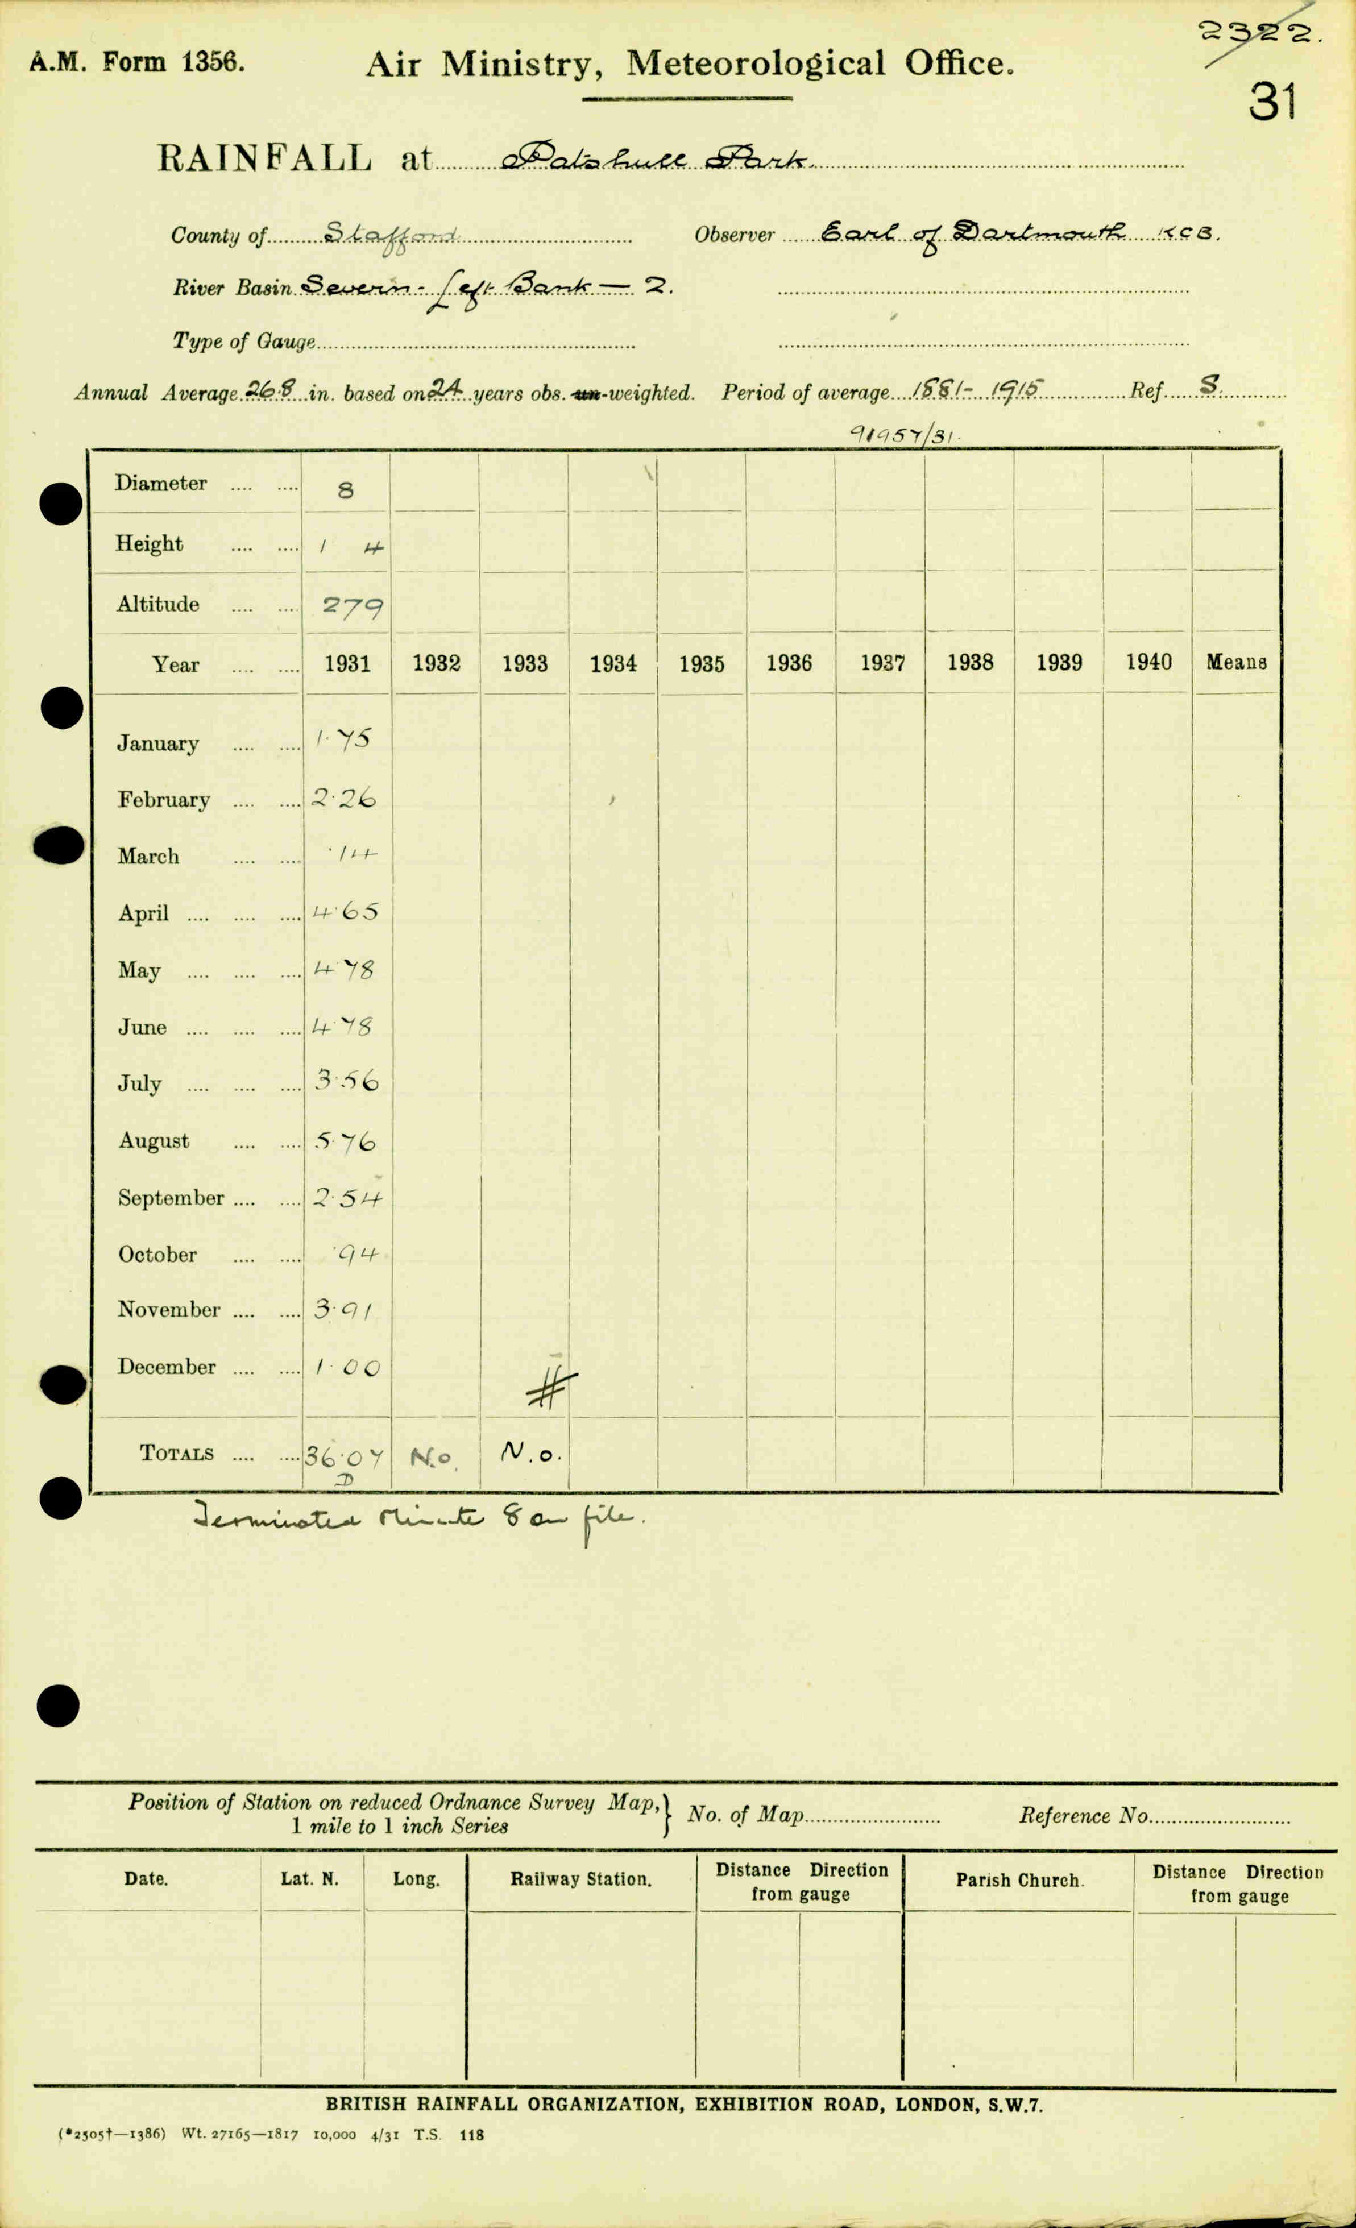 2322.
A.M. Form 1356. Air Ministry, Meteorological Office.
31
RAINFALL at Patshull Park
County of Stafford Observer Earl of Dartmouth KCB.
River Basin Severn - Left Bank — 2.
Type of Gauge
Annual Average 26.8 in. based on 24 years obs. un-weighted. Period of average 1881- 1915 Ref. S.
91957/31.
Diameter .... .... 8
Height .... .... 1 4
Altitude .... .... 279
Year .... .... 1931 1932 1933 1934 1935 1936 1937 1938 1939 1940 Means
January .... .... 1.75
February .... .... 2.26
March .... .... .14
April .... .... .... 4.65
May .... .... .... 4.78
June .... .... .... 4.78
July .... .... .... 3.56
August .... .... 5.76
September .... .... 2.54
October .... .... .94
November .... .... 3.91
December .... .... 1.00
#
TOTALS .... .... 36.07 N.o. N.o.
D
Terminated Minute 8 on file.
Position of Station on reduced Ordnance Survey Map, } No. of Map Reference No.
1 mile to 1 inch Series
Date. Lat. N. Long. Railway Station. Distance Direction from gauge Parish Church. Distance Direction from gauge
BRITISH RAINFALL ORGANIZATION, EXHIBITION ROAD, LONDON, S.W.7.
(*2505†—1386) Wt. 27165—1817 10,000 4/31 T.S. 118